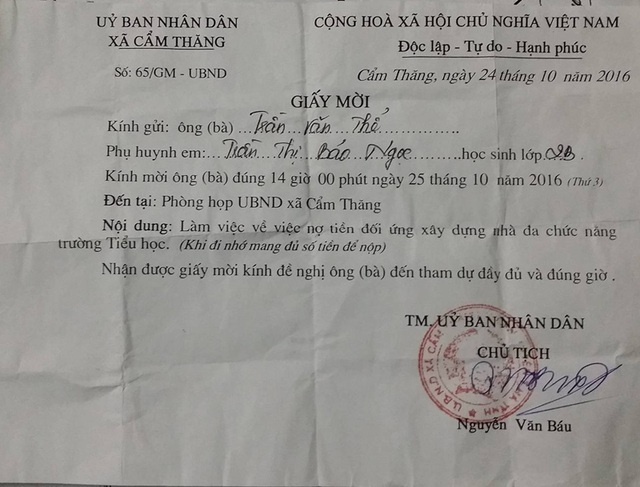 UỶ BAN NHÂN DÂN
XÃ CẨM THĂNG
Số: 65/GM - UBND
CỘNG HOÀ XÃ HỘI CHỦ NGHĨA VIỆT NAM
Độc lập - Tự do - Hạnh phúc
Cẩm Thăng, ngày 24 tháng 10 năm 2016
GIẤY MỜI
Kính gửi: ông (bà) ...Trần...Văn...Thể...............
Phụ huynh em:...Trần...Thị...Bảo...Ngọc..........học sinh lớp.2B.
Kính mời ông (bà) đúng 14 giờ 00 phút ngày 25 tháng 10 năm 2016 (Thứ 3)
Đến tại: Phòng họp UBND xã Cẩm Thăng
Nội dung: Làm việc về việc nợ tiền đối ứng xây dựng nhà đa chức năng
trường Tiểu học. (Khi đi nhớ mang đủ số tiền để nộp)
Nhận được giấy mời kính đề nghị ông (bà) đến tham dự đầy đủ và đúng giờ .
TM. UỶ BAN NHÂN DÂN
CHỦ TỊCH
U.B.N.D XÃ CẨM
Nguyễn Văn Báu